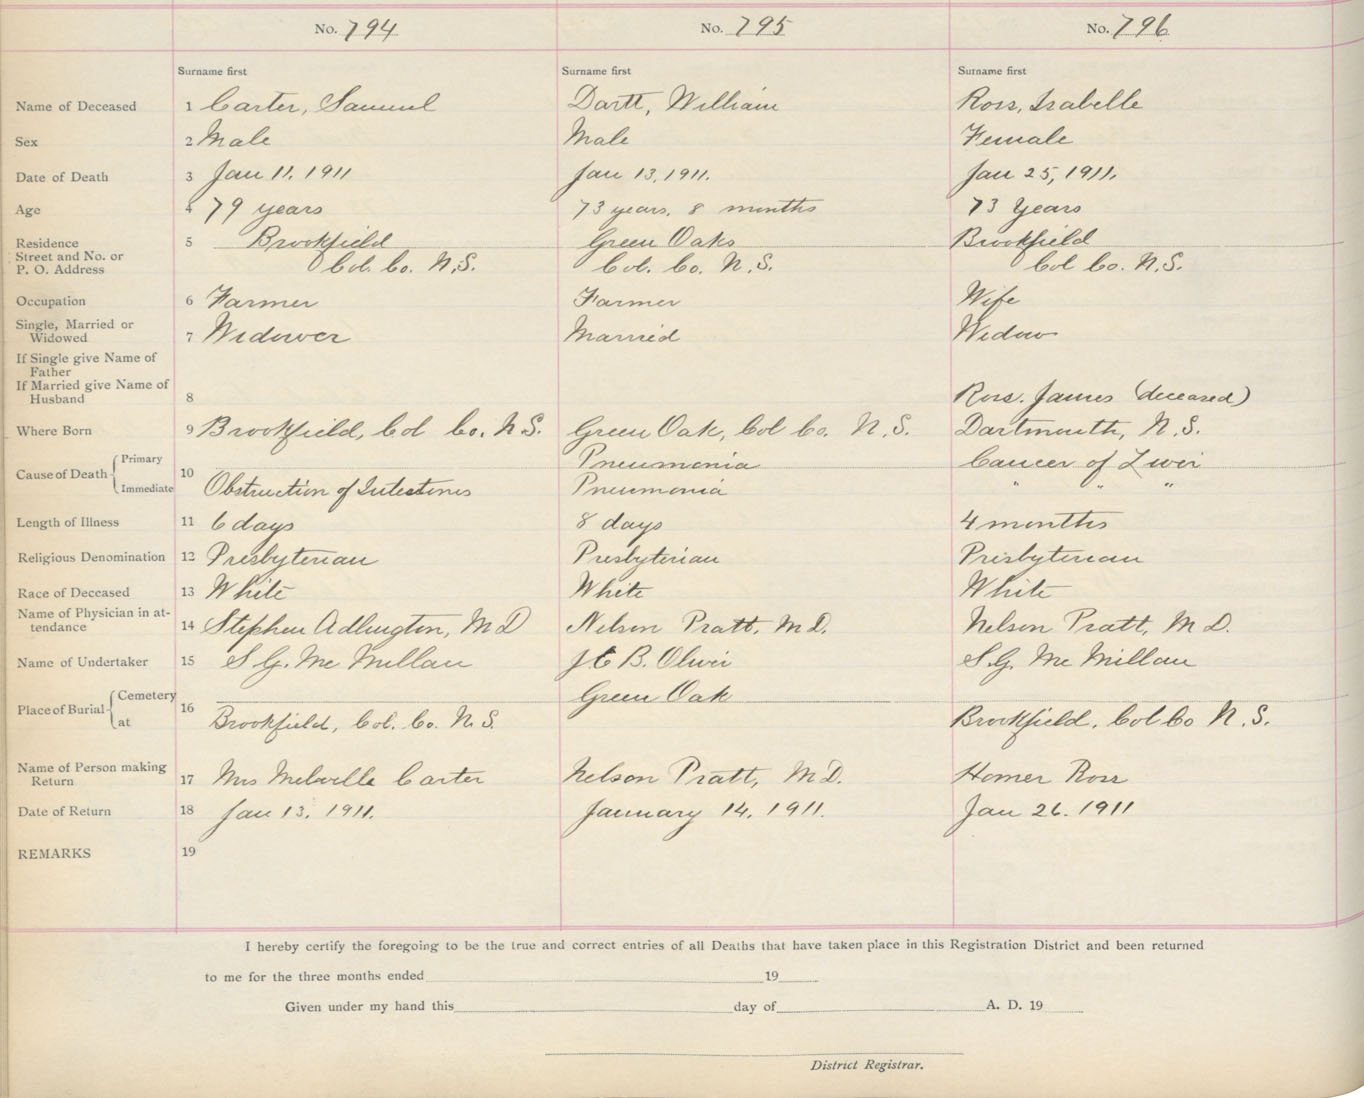 No. 794 No. 795 No. 796
Surname first Surname first Surname first
Name of Deceased 1 Carter, Samuel Dartt, William Ross, Isabelle
Sex 2 Male Male Female
Date of Death 3 Jan 11, 1911 Jan 13, 1911. Jan 25, 1911.
Age 4 79 years 73 years, 8 months 73 Years
Residence 5 Brookfield Green Oaks Brookfield
Street and No. or
P. O. Address Col. Co. N.S. Col. Co. N.S. Col Co. N.S.
Occupation 6 Farmer Farmer Wife
Single, Married or
Widowed 7 Widower Married Widow
If Single give Name of
Father
If Married give Name of
Husband 8 Ross. James (deceased)
Where Born 9 Brookfield, Col Co. N.S. Green Oak, Col Co. N.S. Dartmouth, N.S.
Primary Pneumonia Cancer of Liver
Cause of Death 10
Immediate Obstruction of Intestines Pneumonia " " "
Length of Illness 11 6 days 8 days 4 months
Religious Denomination 12 Presbyterian Presbyterian Presbyterian
Race of Deceased 13 White White White
Name of Physician in at-
tendance 14 Stephen Adlington, M D Nelson Pratt, M.D. Nelson Pratt, M D.
Name of Undertaker 15 S.G. Mc Millan B. Oliver S.G. Mc Millan
Cemetery Green Oak
Place of Burial 16
at Brookfield, Col. Co. N.S. Brookfield, Col Co N.S.
Name of Person making
Return 17 Mrs Melville Carter Nelson Pratt, M.D. Homer Ross
Date of Return 18 Jan 13, 1911. January 14, 1911. Jan 26. 1911
REMARKS 19
I hereby certify the foregoing to be the true and correct entries of all Deaths that have taken place in this Registration District and been returned
to me for the three months ended 19
Given under my hand this day of A. D. 19
District Registrar.